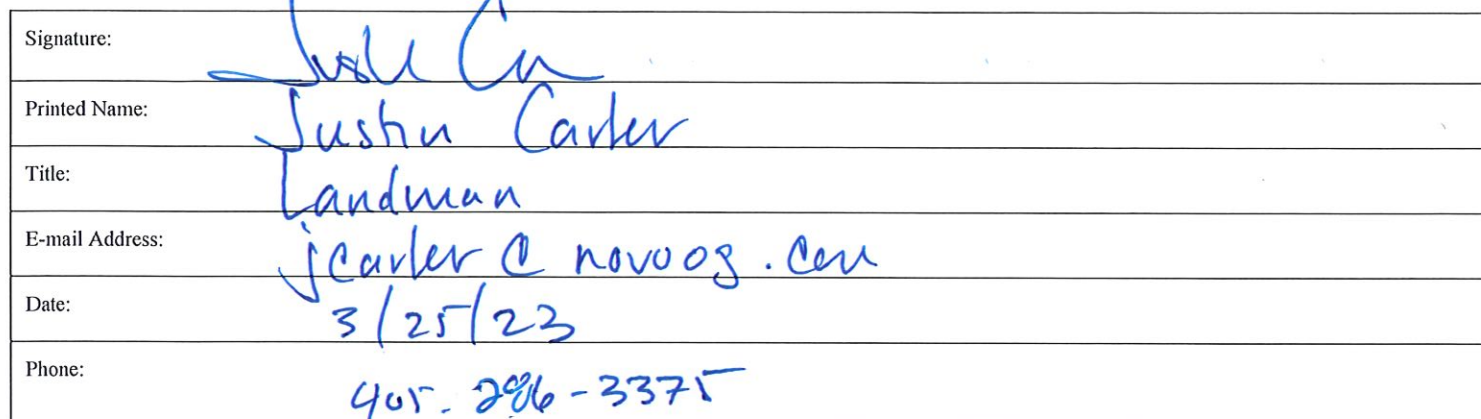 Signature: Justin Carter
Printed Name: Justin Carter
Title: Landman
E-mail Address: jcarter@novoog.com
Date: 3/25/23
Phone: 405-286-3375